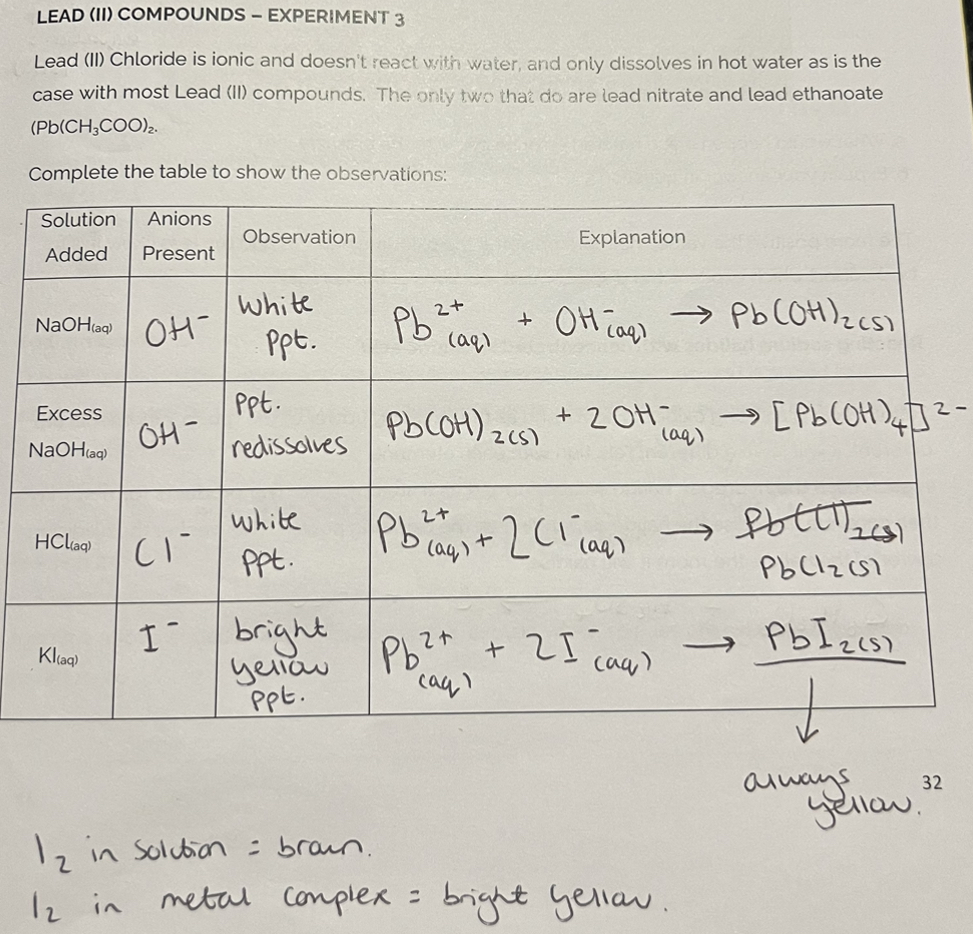 LEAD (II) COMPOUNDS – EXPERIMENT 3
Lead (II) Chloride is ionic and doesn't react with water, and only dissolves in hot water as is the
case with most Lead (II) compounds. The only two that do are lead nitrate and lead ethanoate
(Pb(CH₃COO)₂.
Complete the table to show the observations:
Solution Added | Anions Present | Observation | Explanation
NaOH(aq) | OH⁻ | White ppt. | Pb²⁺(aq) + OH⁻(aq) → Pb(OH)₂(s)
Excess NaOH(aq) | OH⁻ | ppt. redissolves | Pb(OH)₂(s) + 2OH⁻(aq) → [Pb(OH)₄]²⁻
HCl(aq) | Cl⁻ | white ppt. | Pb²⁺(aq) + 2Cl⁻(aq) → Pb(Cl)₂(s) PbCl₂(s)
KI(aq) | I⁻ | bright yellow ppt. | Pb²⁺(aq) + 2I⁻(aq) → PbI₂(s)
↓
always
yellow.
32
I₂ in solution = brown.
I₂ in metal complex = bright yellow.